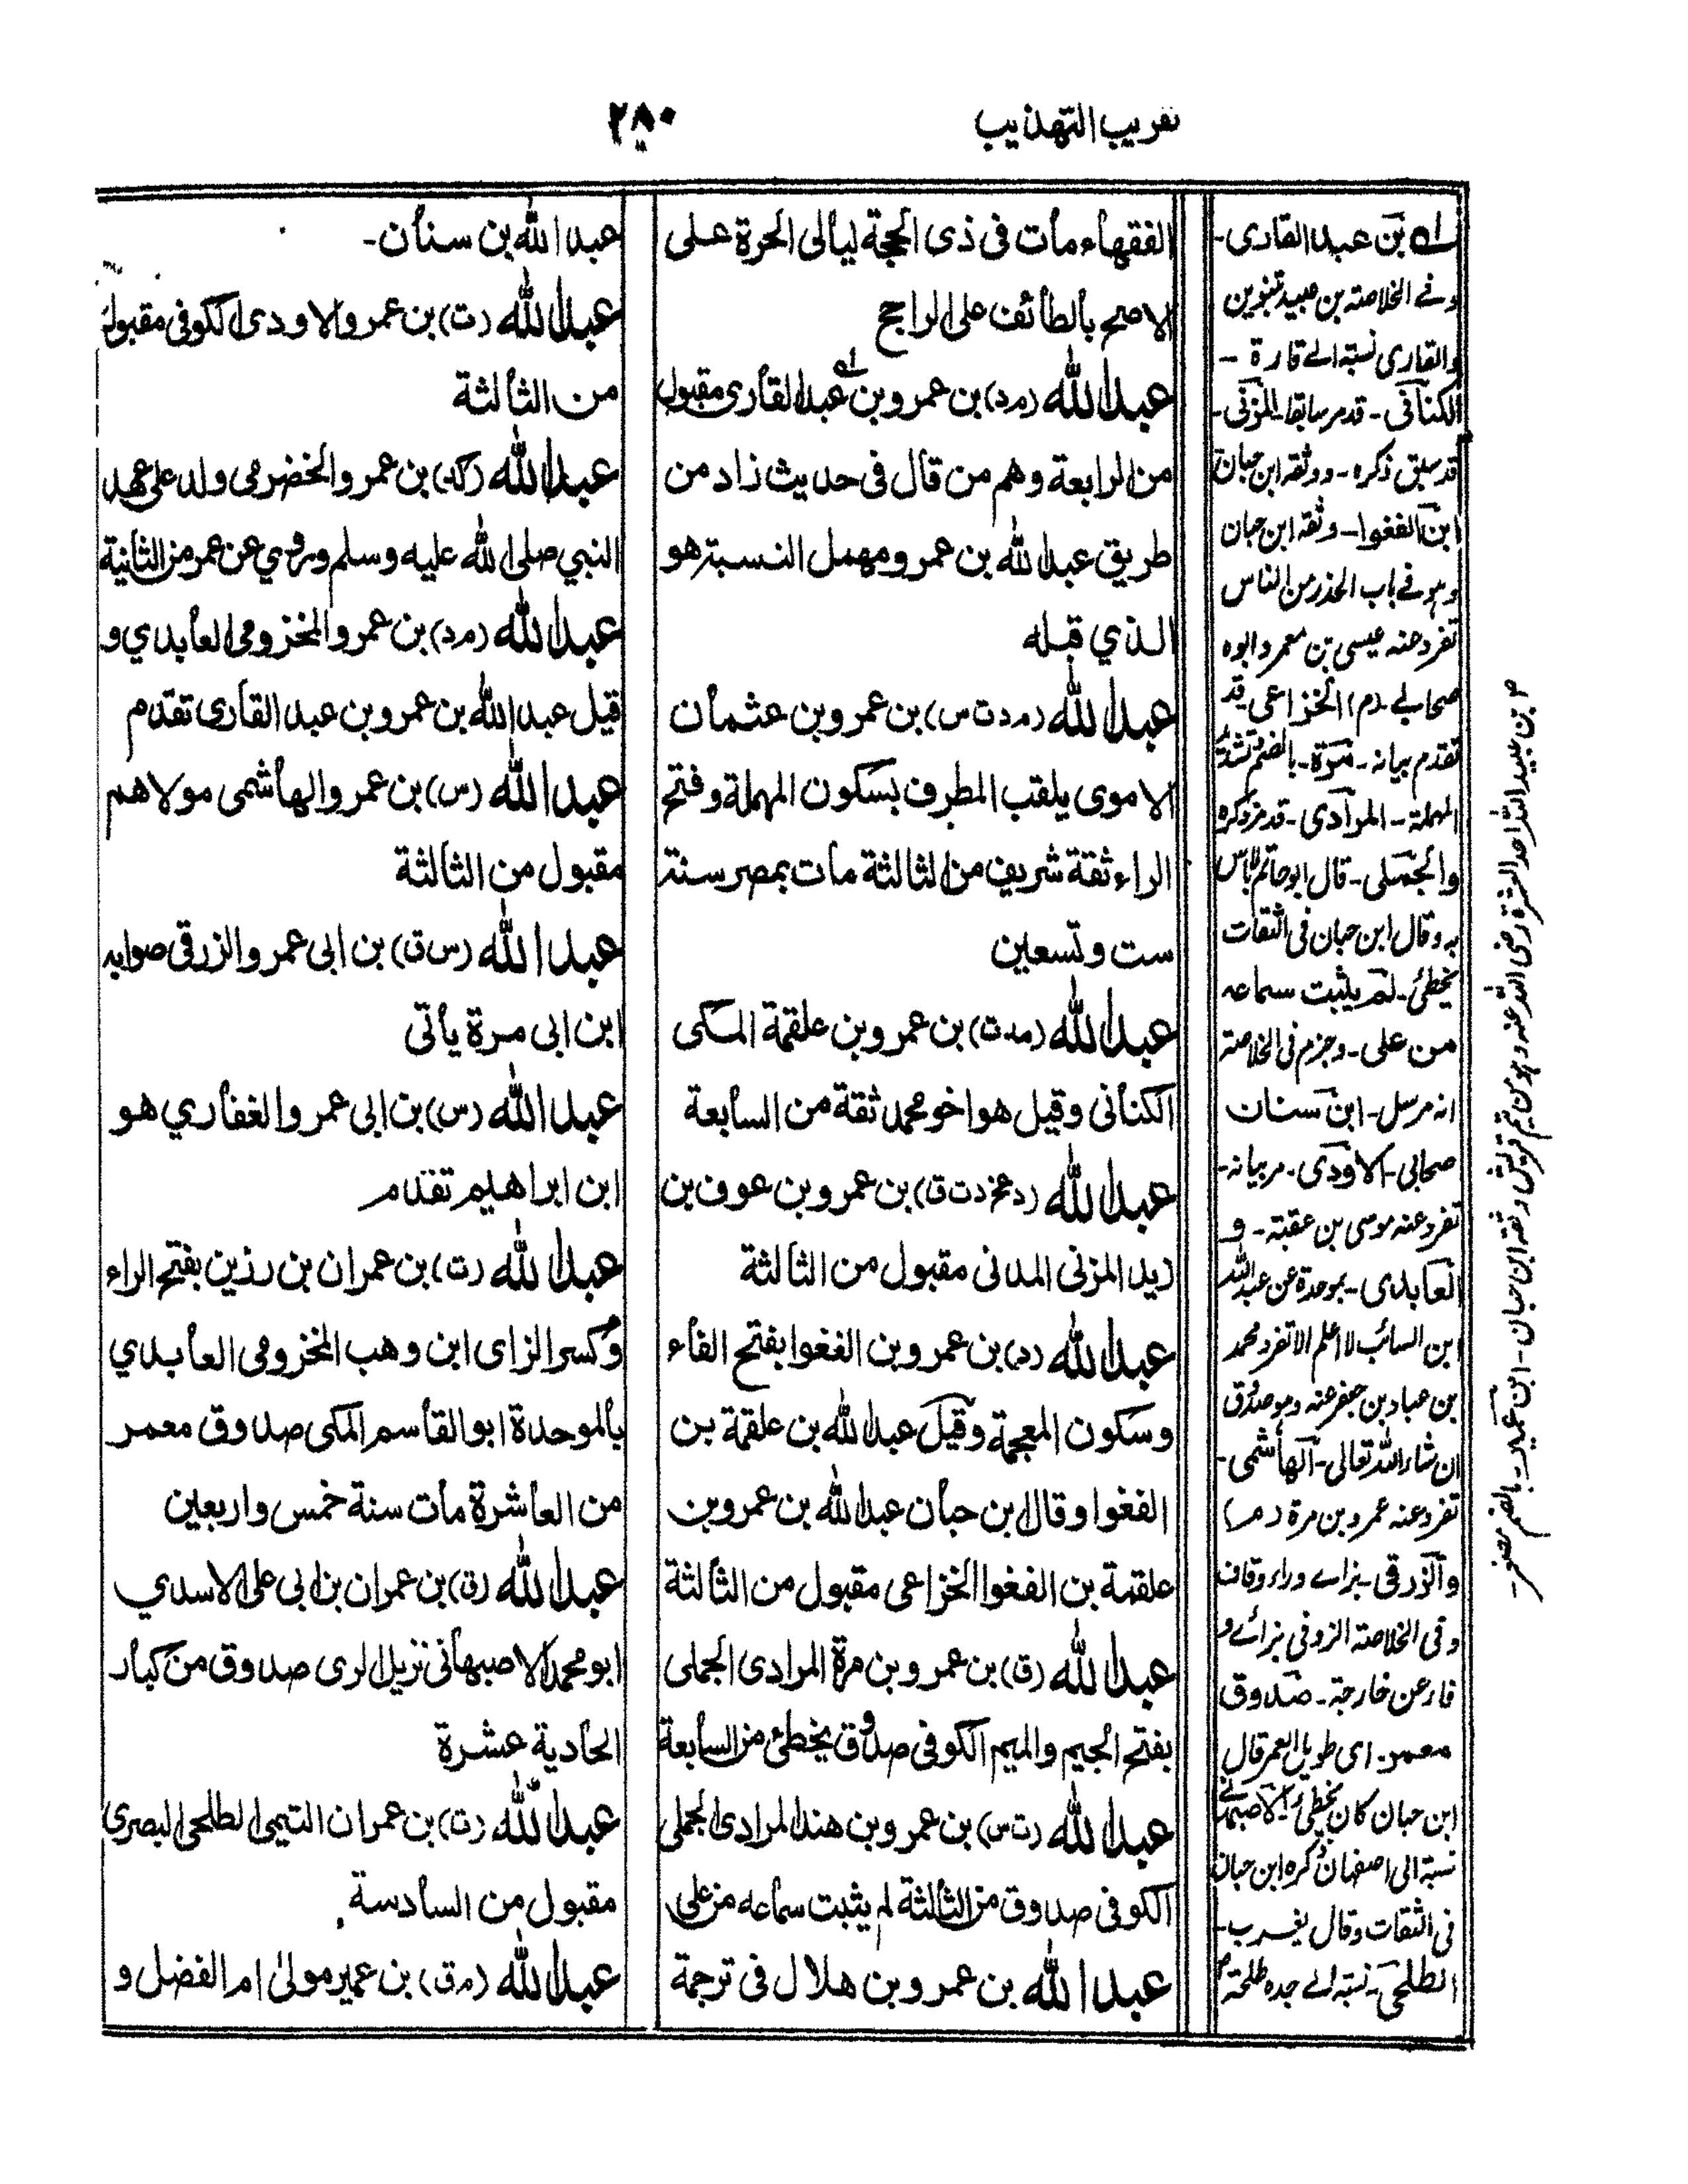 تقريب التهذيب
٢٨٠
الفقهاء مات فى ذى الحجة ليالى الحرة على
الاصح بالطائف على الراجح
عبد الله (م د) بن عمرو بن عبد القارى مقبول
من الرابعة وهم من قال فى حديث زاد من
طريق عبد الله بن عمرو مهمل النسبة هو
الذي قبله
عبد الله (م د ت س) بن عمرو بن عثمان
الاموى يلقب المطرف بسكون المهملة وفتح
الراء ثقة شريف من الثالثة مات بمصر سنة
ست وتسعين
عبد الله (مد ت) بن عمرو بن علقمة المكى
الكنانى وقيل هو اخو محمد ثقة من السابعة
عبد الله (ر عخ د ت ق) بن عمرو بن عوف بن
زيد المزنى المدنى مقبول من الثالثة
عبد الله (د) بن عمرو بن الفغوا بفتح الفاء
وسكون المعجمة وقيل عبد الله بن علقمة بن
الفغوا وقال ابن حبان عبد الله بن عمرو بن
علقمة بن الفغوا الخزاعى مقبول من الثالثة
عبد الله (ق) بن عمرو بن مرة المرادى الجملى
بفتح الجيم والميم الكوفى صدوق يخطئ من السابعة
عبد الله (ت س) بن عمرو بن هند المرادى الجملى
الكوفى صدوق من الثالثة لم يثبت سماعه من على
عبد الله بن عمرو بن هلال فى ترجمة
عبد الله بن سنان-
عبد الله (ت) بن عمرو الاودى الكوفى مقبول
من الثالثة
عبد الله (كد) بن عمرو الحضرمى ولد على عهد
النبي صلى الله عليه وسلم وروي عن عمر من الثانية
عبد الله (م د) بن عمرو المخزومى العابدي و
قيل عبد الله بن عمرو بن عبد القارى تقدم
عبد الله (س) بن عمرو الهاشمى مولاهم
مقبول من الثالثة
عبد الله (س ق) بن ابى عمرو الزرقى صوابه
ابن ابى مرة يأتى
عبد الله (س) بن ابى عمرو الغفاري هو
ابن ابراهيم تقدم
عبد الله (ت) بن عمران بن رزين بفتح الراء
وكسر الزاى ابن وهب المخزومى العابدي
بالموحدة ابو القاسم المكى صدوق معمر
من العاشرة مات سنة خمس واربعين
عبد الله (ق) بن عمران بن ابى على الاسدي
ابو محمد الاصبهانى نزيل الرى صدوق من كبار
الحادية عشرة
عبد الله (ت) بن عمران التيمى الطلحى البصرى
مقبول من السادسة
عبد الله (م ق) بن عمير مولى ام الفضل و
له بن عبد القارى-
وفے الخلاصة بن عبيد بتنوين
والقارى نسبة الے قارة-
الكنانى- قدم سابقا- المزنى-
قد سبق ذكره- ووثقه ابن حبان
ابن الفغوا- وثقه ابن حبان
وهو فے باب الحذر من الناس
تفرد عنه عيسى بن معمر وابوه
صحابے (م) الخزاعى قد
تقدم بيانه- مرة- بالضم تشديد
المهملة- المرادى- قد مر ذكره
والجملى- قال ابو حاتم لا بأس
به وقال ابن حبان فى الثقات
يخطئ- لم يثبت سماعه
من على- وجزم فى الخلاصة
انه مرسل- ابن سنان
صحابى- الاودى- مر بيانه-
تفرد عنه موسى بن عقبة- و
العابدى- بموحدة عن عبد الله
ابن السائب لا اعلم الا تفرد محمد
بن عباد بن جعفر عنه وهو صدوق
ان شاء الله تعالى- الهاشمى-
تفرد عنه عمرو بن مرة (م)
والزرقى- بزاے وراء وقاف
وفى الخلاصة الزوفى بزائے و
فاء عن خارجة- صدوق
معمر- اى طويل العمر قال
ابن حبان كان يخطئ- الاصبهانے
نسبة الى اصفهان ذكره ابن حبان
فى الثقات وقال يغرب-
الطلحى- نسبة الے جده طلحة
بن عبيد الله احد العشرة رضى الله عنه وهو من تيم قريش وثقه ابن حبان- ابن عمير- بالضم مصغر-